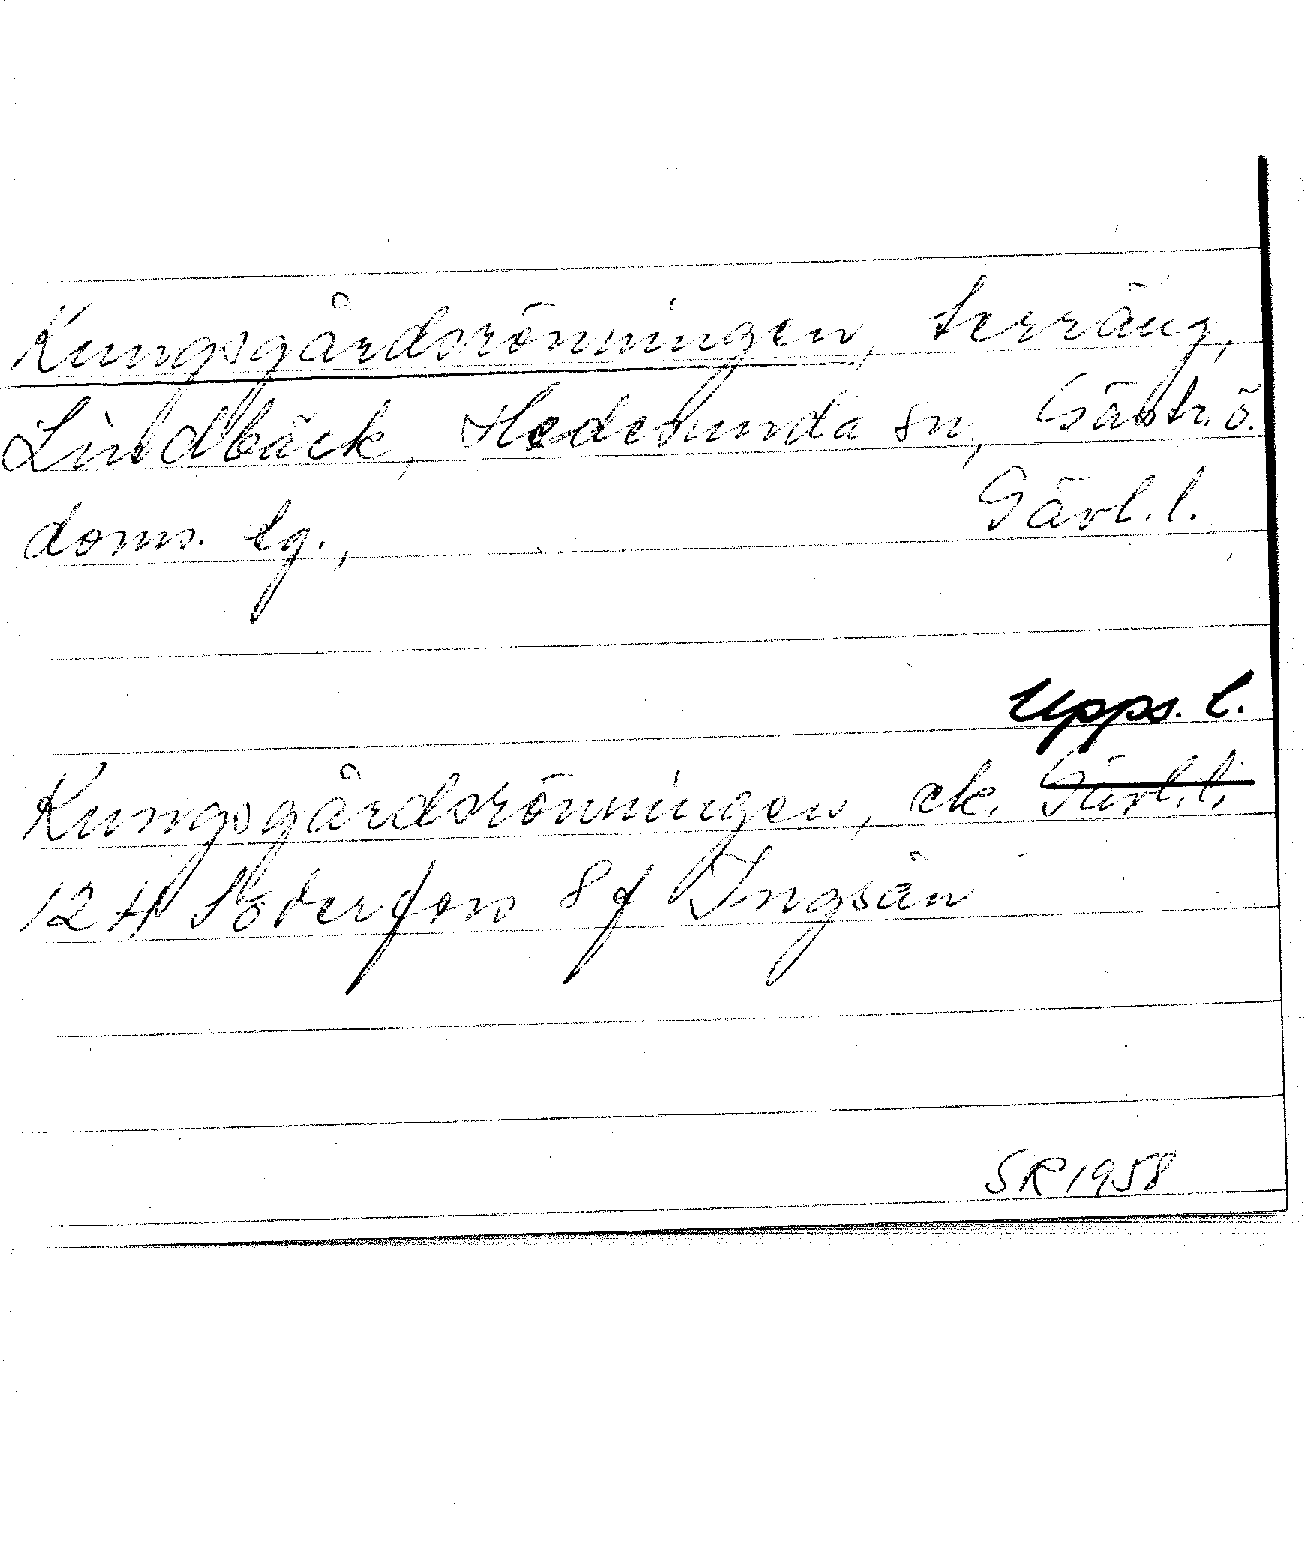 Kungsgårdsrönningen, terräng,
Lindbäck, Hedesunda sn, Gästr. ö.
doms. lg., Gävl. l.
Upps. l.
Kungsgårdsrönningen, ek. Gävl. l.
12 H Söderfors 8f Ingsån
SR 1958